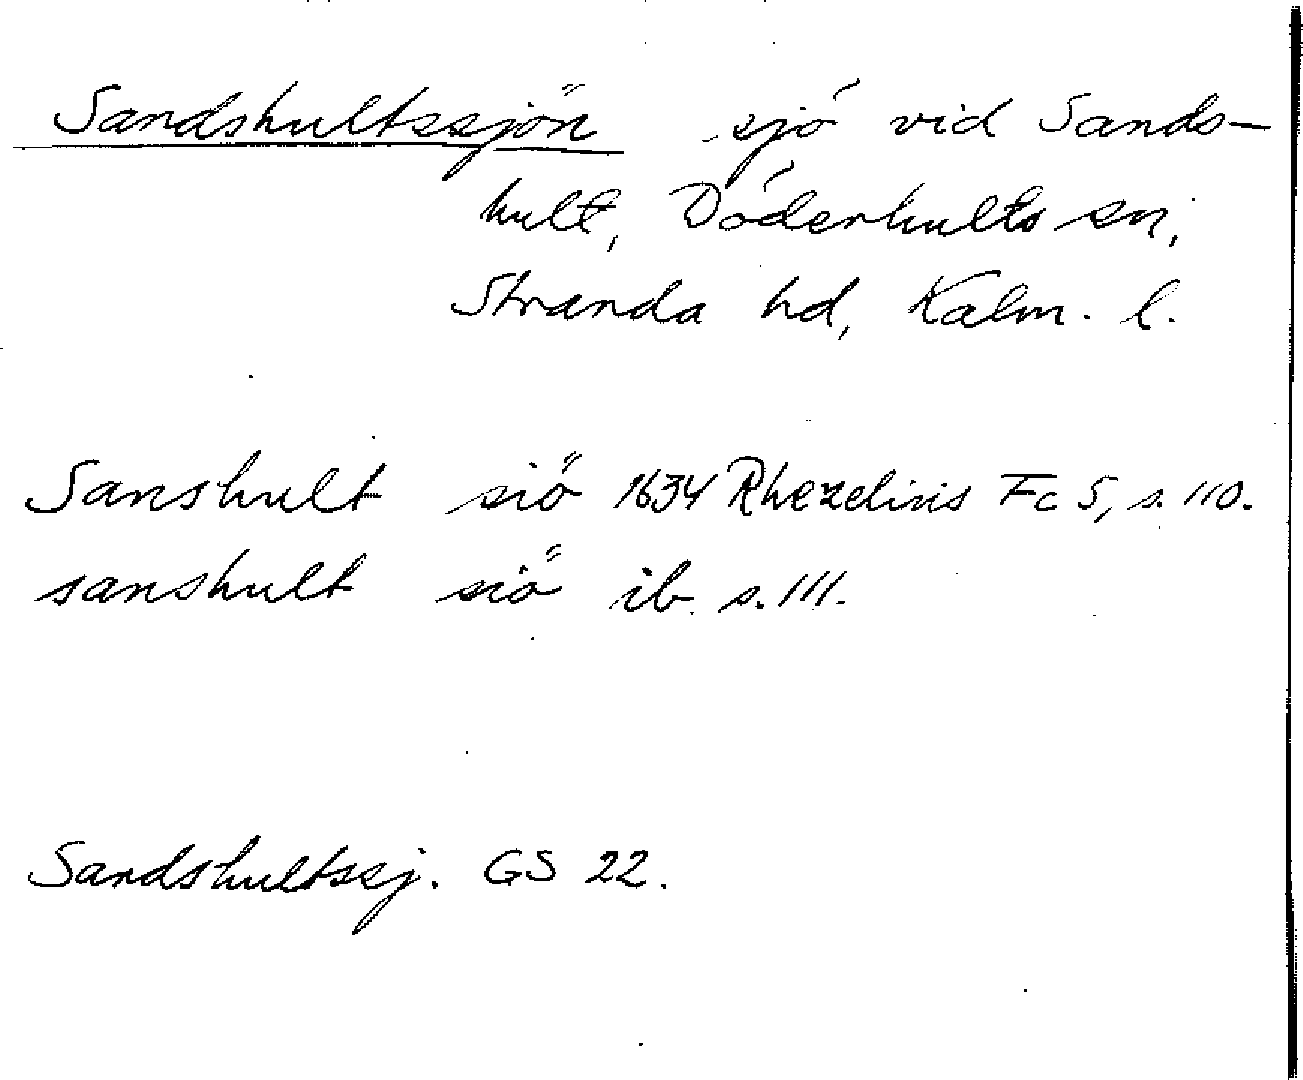 Sandshultssjön sjö vid Sands-
hult, Döderhults sn,
Stranda hd, Kalm. l.
Sanshult siö 1634 Rhezelius Fc 5, s. 110.
sanshult siö ib. s. 111.
Sandshultssj. GS 22.